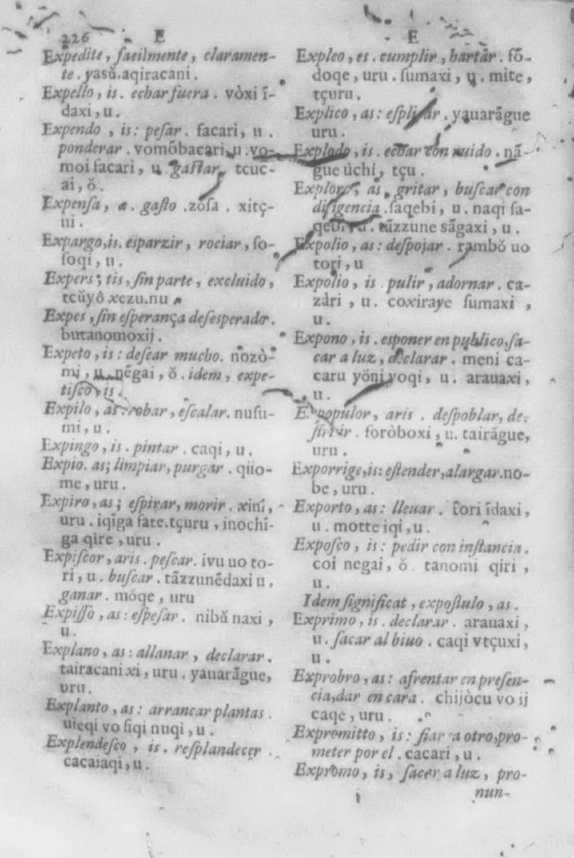 226 E
Expedite, facilmente, claramen-
te. yasŭ.aqiracani.
Expello, is. echar fuera. vòxi ĩ-
daxi, u.
Expendo, is: pesar. facari, u.
ponderar. vomŏbacari, u. vo-
moi facari, u. gastar. tçuc-
ai, ŏ.
Expensa, æ. gasto. zŏsa. xitç-
ui.
Expargo, is. esparzir, rociar, so-
soqi, u.
Expers; tis, sin parte, excluido,
tcŭyŏ xezu.nu
Expes, sin esperança desesperado.
butanomoxij.
Expeto, is: desear mucho. nozò-
mi, u. nẽgai, ŏ. idem, expe-
tisco, is.
Expilo, as: robar, escalar. nusu-
mi, u.
Expingo, is. pintar. caqi, u.
Expio. as; limpiar, purgar. qiio-
me, uru.
Expiro, as; espirar, morir. xinĩ,
uru. iqiga fate.tçuru, inochĩ-
ga qire, uru.
Expiscor, aris. pescar. ivu uo to-
ri, u. buscar. tãzzunẽdaxi u.
ganar. móqe, uru
Expisso, as: espesar. nibŏ naxi,
u.
Explano, as: allanar, declarar.
tairacani xi, uru. yauarãgue,
uru.
Explanto, as: arrancar plantas.
uieqi vo fiqi nuqi, u.
Explendesco, is. resplandecer.
cacaiaqi, u.
E
Expleo, es. cumplir, hartar. fŏ-
doqe, uru. sumaxi, u. mite,
tçuru.
Explico, as: esplicar. yauarãgue
uru.
Explodo, is. echar con ruido. nã-
gue ŭchi, tçu.
Exploro, as, gritar, buscar con
diligencia. saqebi, u. naqi sa-
tãzzune sãgaxi, u.
Expolio, as: despojar. rambŏ uo
tori, u
Expolio, is pulir, adornar. ca-
zàri, u. coxiraye sumaxi,
u.
Expono, is. esponer en publico, sa-
car a luz, declarar. meni ca-
caru yŏni voqi, u. arauaxi,
u.
Expopulor, aris. despoblar, de-
foròboxi, u. tairãgue,
uru.
Exporrige, is: estender, alargar. no-
be, uru.
Exporto, as: lleuar. fori ĩdaxi,
u. motte iqi, u.
Exposco, is: pedir con instancia.
coi negai, ŏ tanomi qiri,
u.
Idem significat, expostulo, as.
Exprimo, is. declarar. arauaxi,
u. sacar al biuo. caqi vtçuxi,
u.
Exprobro, as: afrentar en presen-
cia, dar en cara. chijòcu vo ij
caqe, uru.
Expromitto, is: fiar a otro, pro-
meter por el. cacari, u.
Expromo, is, sacar a luz, pro-
nun-